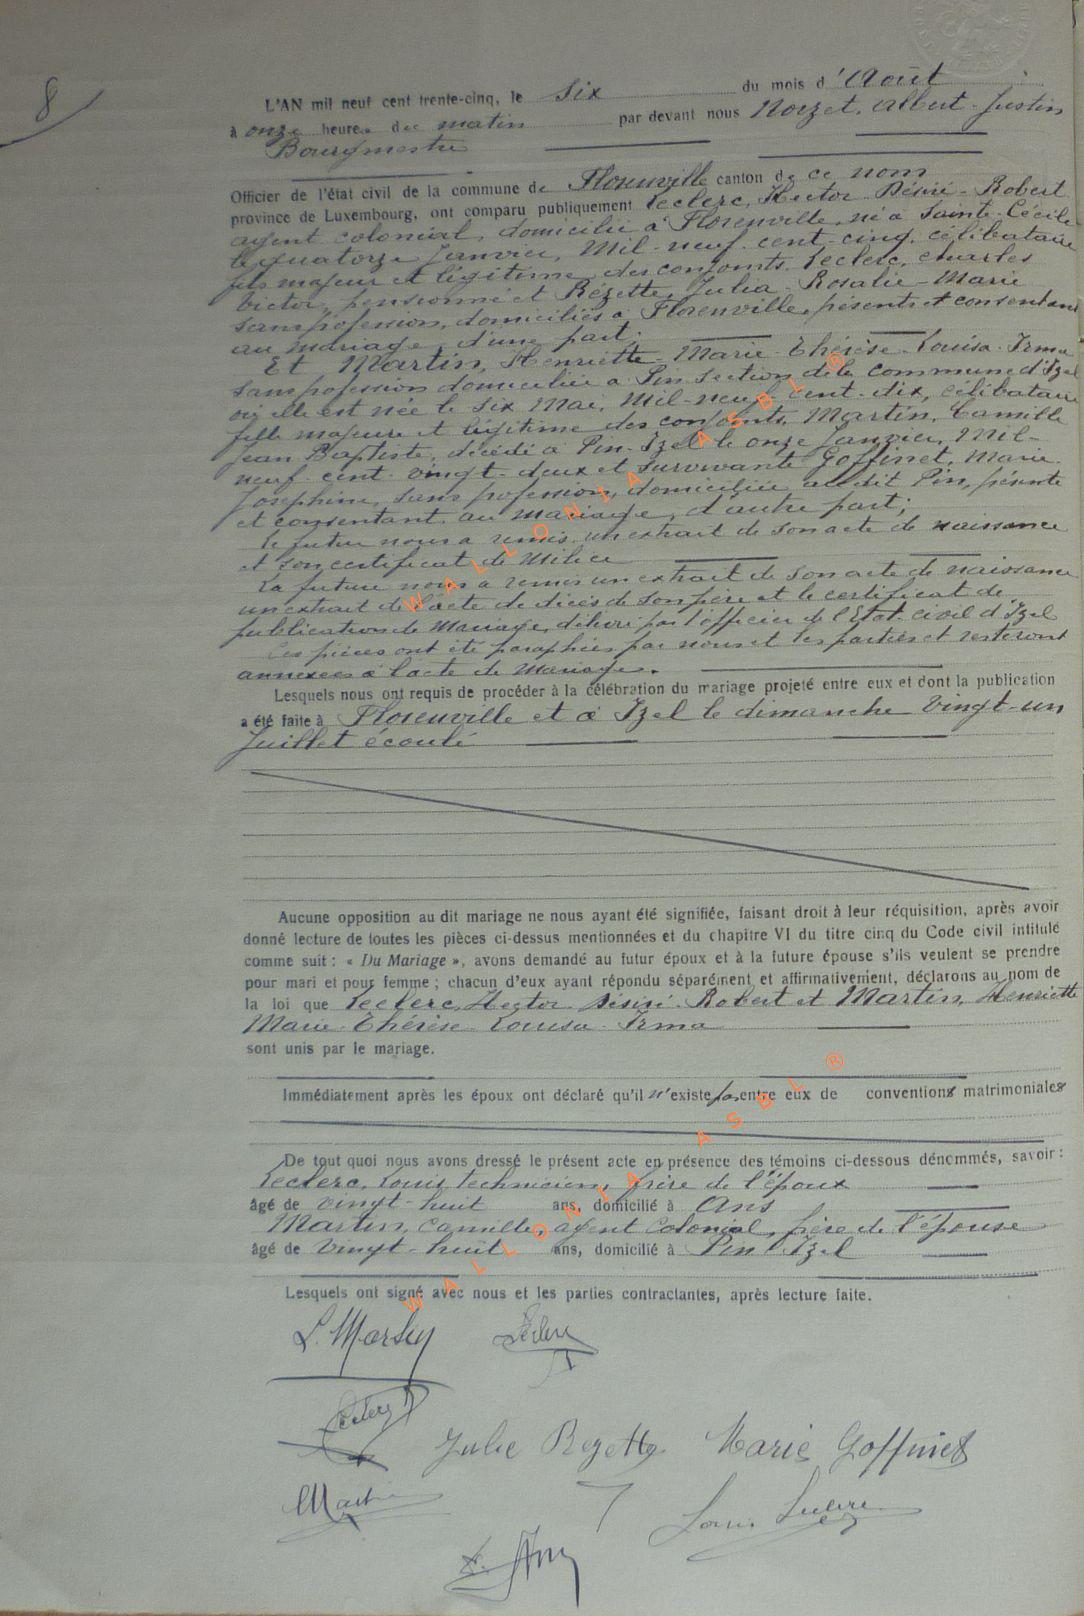 8
L'AN mil neuf cent trente-cinq, le six du mois d'Août
à onze heures du matin par devant nous Noizet, Albert-Justin
Bourgmestre
Officier de l'état civil de la commune de Florenville canton de ce nom
province de Luxembourg, ont comparu publiquement Leclerc, Hector-Désiré-Robert
agent colonial, domicilié à Florenville, né à Sainte-Cécile
le quatorze Janvier, Mil-neuf-cent-cinq, célibataire
fils majeur et légitime des conjoints Leclerc, Charles
Victor, pensionné et Rézette, Julia-Rosalie-Marie
sans profession, domiciliés à Florenville, présents et consentant
au mariage, d'une part.
Et Martin, Henriette-Marie-Thérèse-Louisa-Irma
sans profession domiciliée à Pin section de la commune d'Izel
où elle est née le six Mai, Mil-neuf-cent-dix, célibataire
fille majeure et légitime des conjoints, Martin, Camille
Jean Baptiste, décédé à Pin-Izel le onze Janvier, Mil-
neuf-cent-vingt-deux et survivante Goffinet, Marie
Joséphine, sans profession, domiciliée au dit Pin, présente
et consentant au mariage, d'autre part;
Le futur nous a remis un extrait de son acte de naissance
et son certificat de Milice
La future nous a remis un extrait de son acte de naissance
un extrait de l'acte de décès de son père et le certificat de
publication de Mariage, délivré par l'officier de l'Etat-civil d'Izel
Ces pièces ont été paraphées par nous et les parties et resteront
annexées à l'acte de Mariage.
Lesquels nous ont requis de procéder à la célébration du mariage projeté entre eux et dont la publication
a été faite à Florenville et à Izel le dimanche vingt-un
Juillet écoulé
Aucune opposition au dit mariage ne nous ayant été signifiée, faisant droit à leur réquisition, après avoir
donné lecture de toutes les pièces ci-dessus mentionnées et du chapitre VI du titre cinq du Code civil intitulé
comme suit : « Du Mariage », avons demandé au futur époux et à la future épouse s'ils veulent se prendre
pour mari et pour femme ; chacun d'eux ayant répondu séparément et affirmativement, déclarons au nom de
la loi que Leclerc, Hector Désiré-Robert et Martin, Henriette
Marie-Thérèse-Louisa-Irma
sont unis par le mariage.
Immédiatement après les époux ont déclaré qu'il n'existe pas entre eux de conventions matrimoniales
De tout quoi nous avons dressé le présent acte en présence des témoins ci-dessous dénommés, savoir :
Leclerc, Louis, technicien, frère de l'époux
âgé de vingt-huit ans, domicilié à Ans
Martin, Camille, agent colonial, frère de l'épouse
âgé de vingt-huit ans, domicilié à Pin-Izel
Lesquels ont signé avec nous et les parties contractantes, après lecture faite.
Leclerc
Leclerc
Julie Rezette Marie Goffinet
Martin Louis Leclerc
WALLONIA ASBL ®
WALLONIA ASBL ®